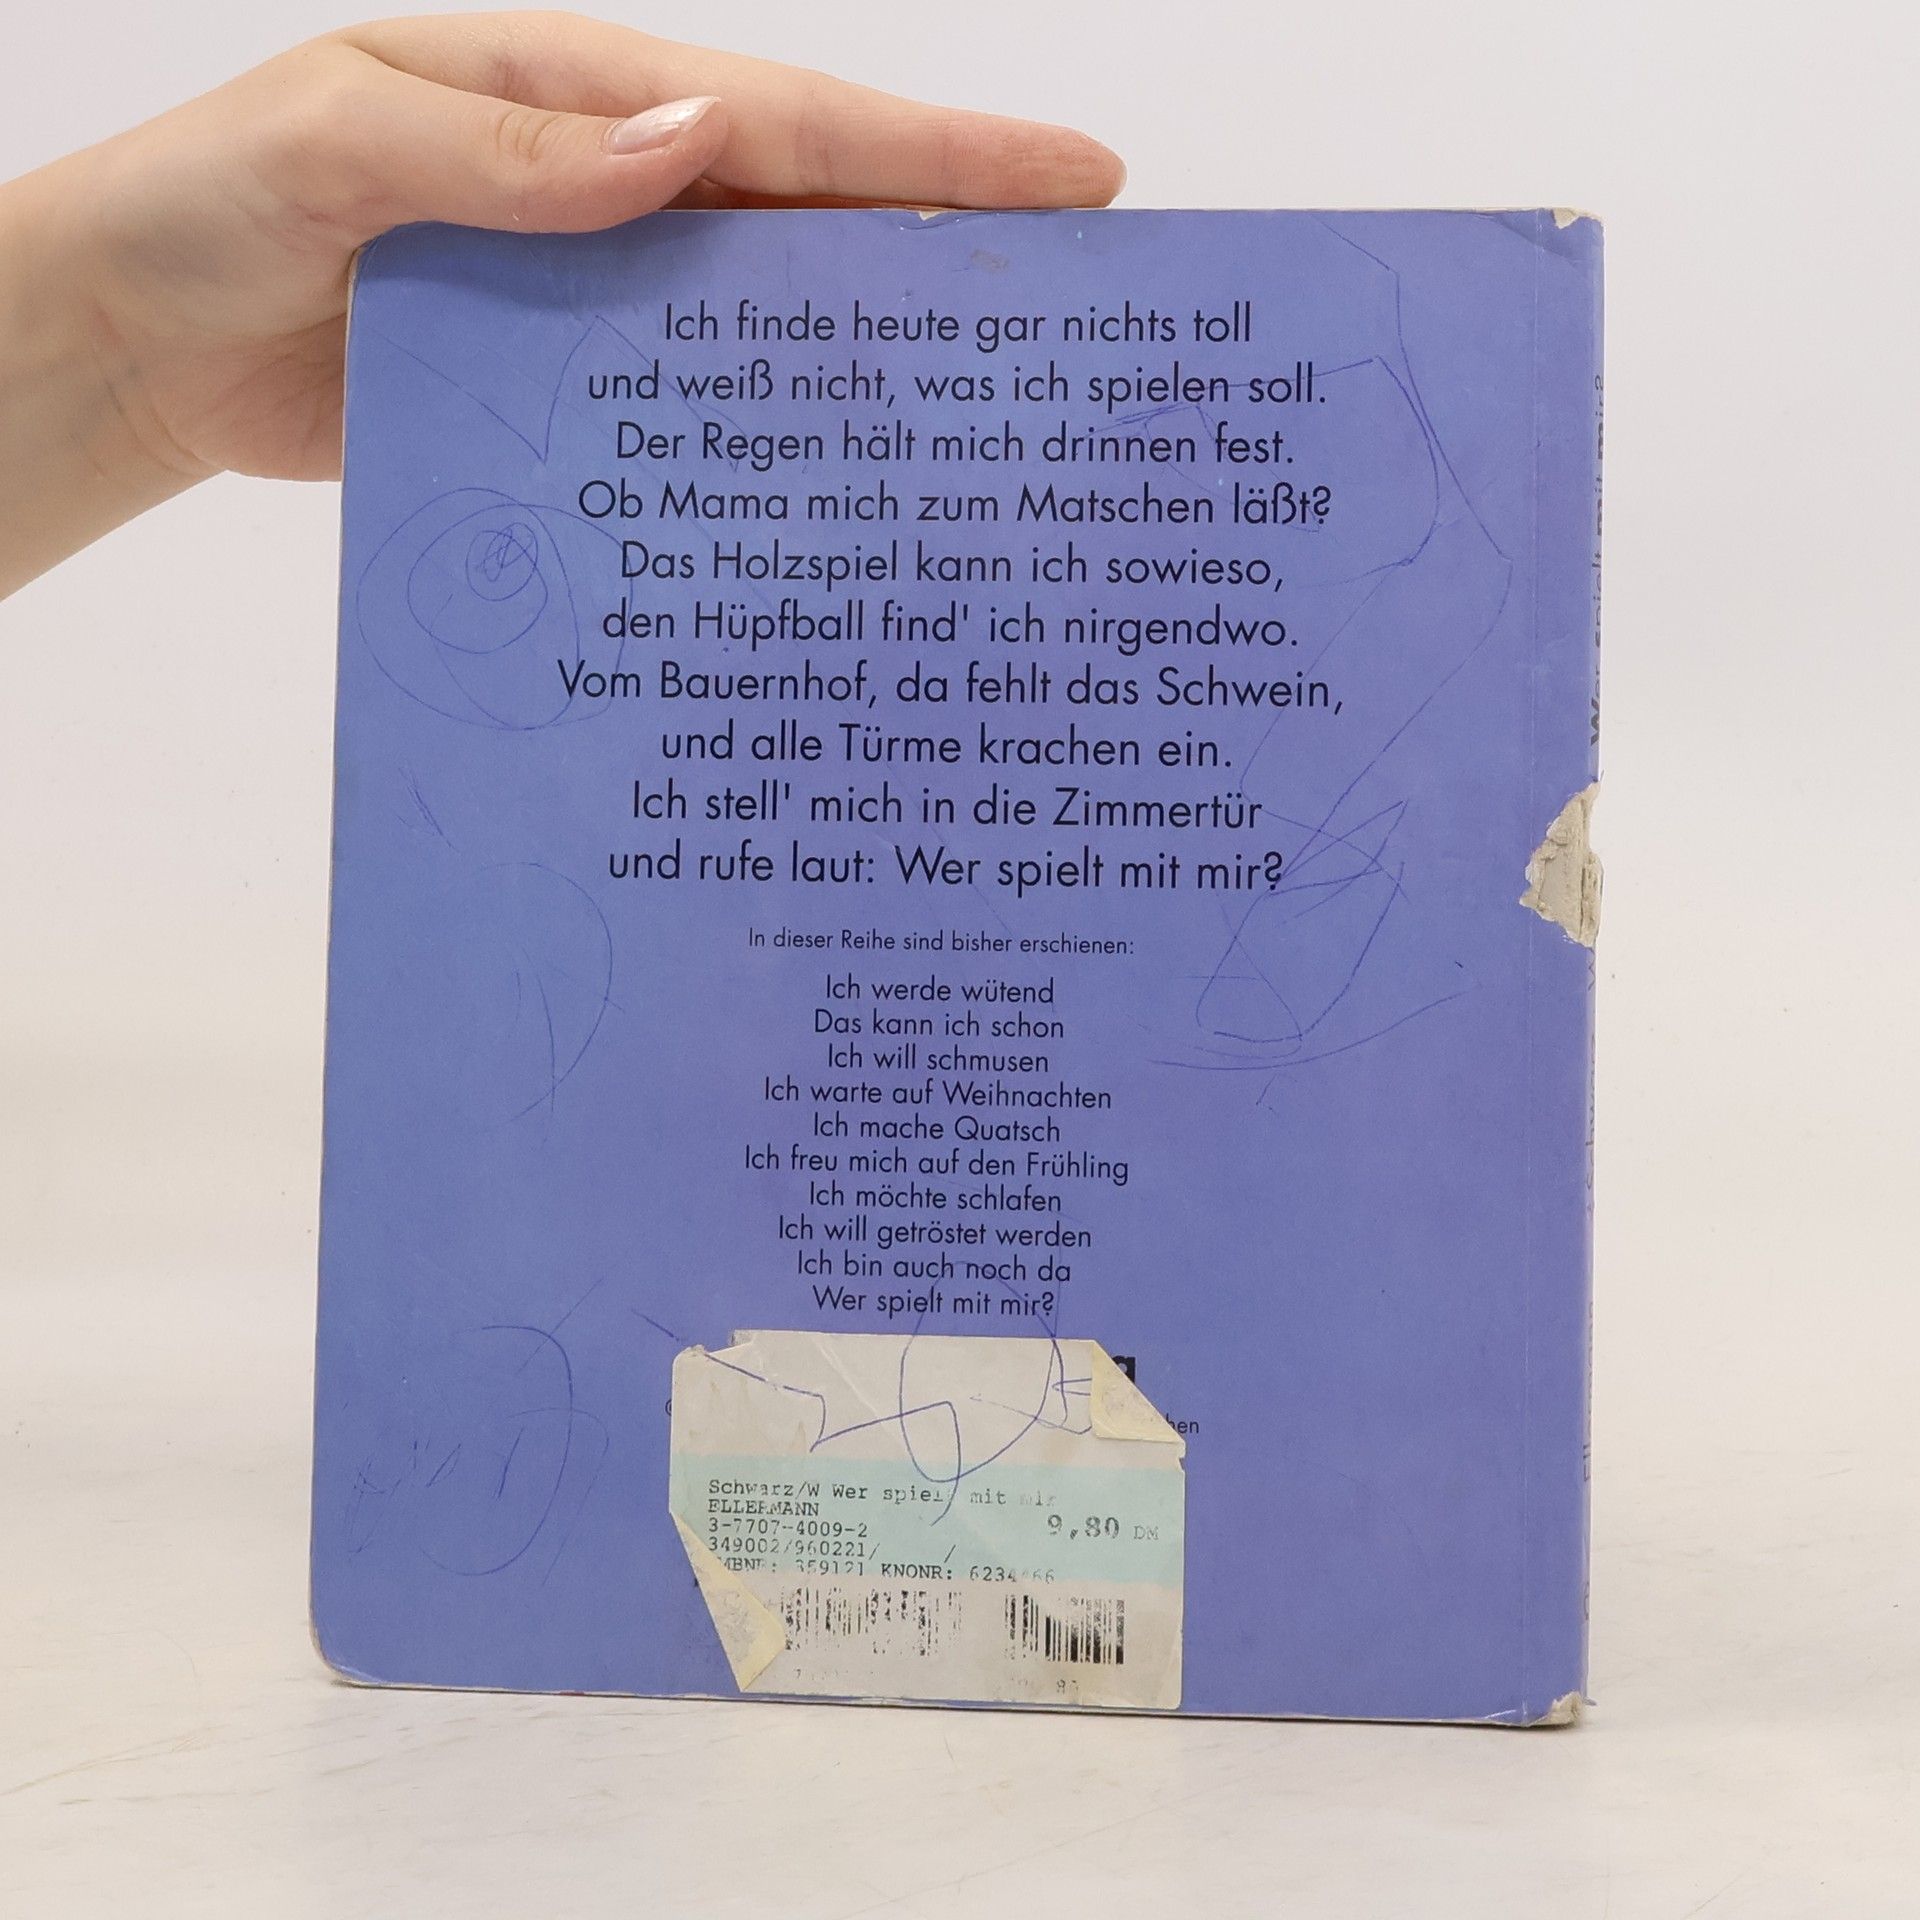 Ich finde heute gar nichts toll
und weiß nicht, was ich spielen soll.
Der Regen hält mich drinnen fest.
Ob Mama mich zum Matschen läßt?
Das Holzspiel kann ich sowieso,
den Hüpfball find' ich nirgendwo.
Vom Bauernhof, da fehlt das Schwein,
und alle Türme krachen ein.
Ich stell' mich in die Zimmertür
und rufe laut: Wer spielt mit mir?
In dieser Reihe sind bisher erschienen:
Ich werde wütend
Das kann ich schon
Ich will schmusen
Ich warte auf Weihnachten
Ich mache Quatsch
Ich freu mich auf den Frühling
Ich möchte schlafen
Ich will getröstet werden
Ich bin auch noch da
Wer spielt mit mir?
Schwarz/W Wer spielt mit mir
ELLERMANN
3-7707-4009-2 9,80 DM
349002/960221/ /
KNONR:
Wer spielt mit mir?